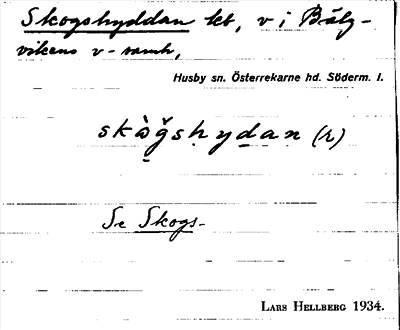 Skogshyddan lht, v i Bälg-
vikens v-samh,
Husby sn. Österrekarne hd. Söderm. l.
skògshydan (r)
Se Skogs-
LARS HELLBERG 1934.